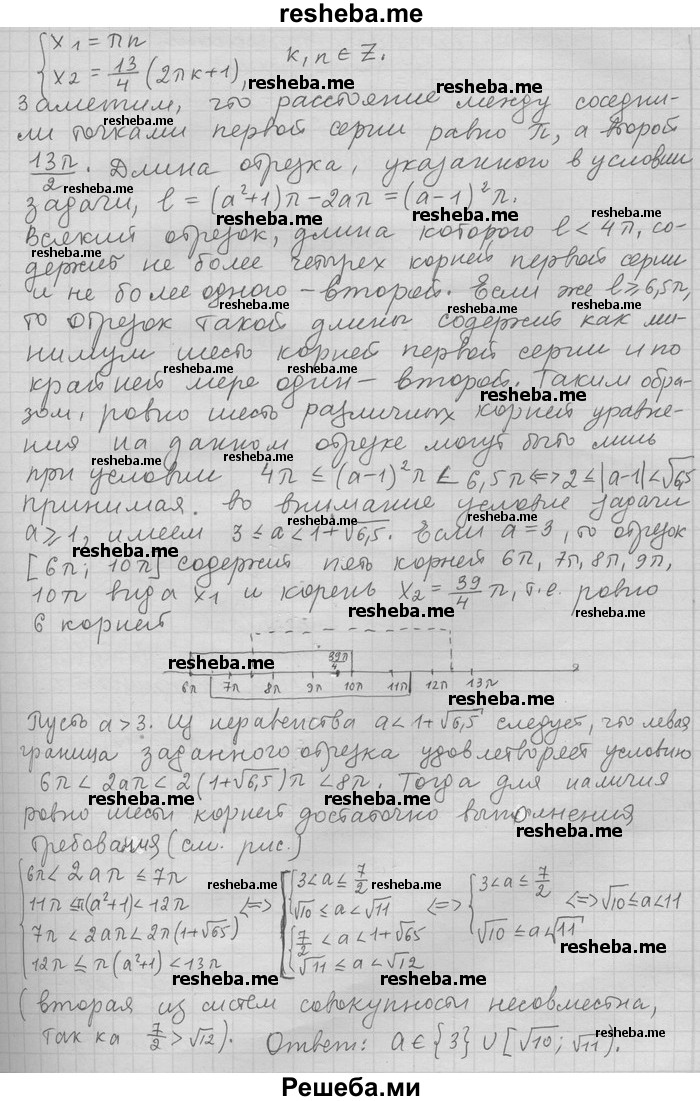 resheba.me
{ x1 = πn
x2 = 13/4 (2πk+1), k, n ∈ Z.
Заметим, что расстояние между соседни-
ми точками первой серии равно π, а второй
13π/2. Длина отрезка, указанного в условии
задачи, l = (a²+1)π − 2aπ = (a−1)²π.
Всякий отрезок, длина которого l < 4π, со-
держит не более четырех корней первой серии
и не более одного – второй. Если же l ≥ 6,5π,
то отрезок такой длины содержит как ми-
нимум шесть корней первой серии и по
крайней мере один – второй. Таким обра-
зом, ровно шесть различных корней уравне-
ния на данном отрезке могут быть лишь
при условии 4π ≤ (a−1)²π ≤ 6,5π <=> 2 ≤ |a−1| < √6,5
принимая во внимание условие задачи
a ≥ 1, имеем 3 ≤ a < 1+√6,5. Если a = 3, то отрезок
[6π; 10π] содержит пять корней 6π, 7π, 8π, 9π,
10π вида x1 и корень x2 = 39/4 π, т.е. ровно
6 корней
39π/4
6π 7π 8π 9π 10π 11π 12π 13π
Пусть a > 3. Из неравенства a < 1+√6,5 следует, что левая
граница заданного отрезка удовлетворяет условию
6π < 2aπ < 2(1+√6,5)π < 8π. Тогда для наличия
ровно шести корней достаточно выполнения
требования (см. рис.)
{ 6π < 2aπ ≤ 7π
11π ≤ π(a²+1) < 12π
7π < 2aπ < 2π(1+√65)
12π ≤ π(a²+1) < 13π
<=> [ { 3 < a ≤ 7/2
√10 ≤ a < √11
{ 7/2 < a < 1+√65
√11 ≤ a < √12
<=> { 3 < a ≤ 7/2
√10 ≤ a < √11
<=> √10 ≤ a < 11
(вторая из систем совокупности несовместна,
так ка 7/2 > √12). Ответ: a ∈ {3} ∪ [√10; √11).
resheba.me
Решеба.ми